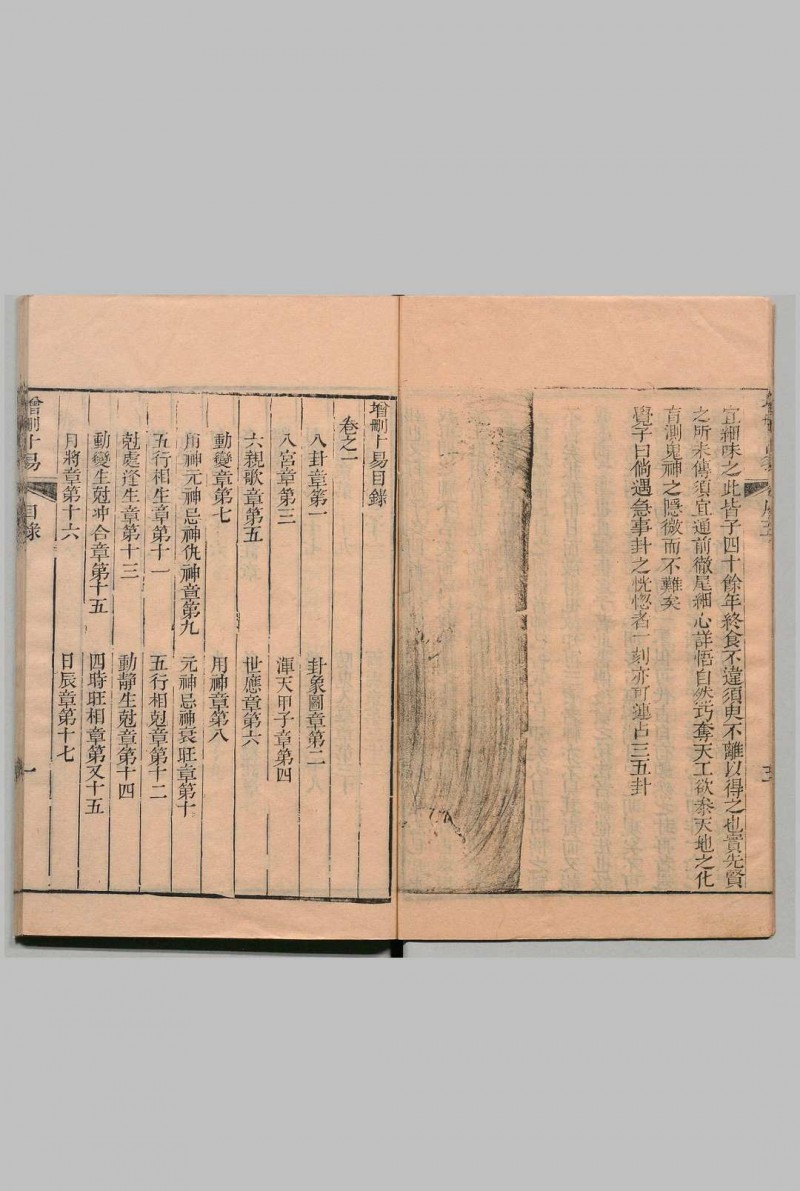 宜細味之此皆予四十餘年終食不違須臾不離以得之也實先賢
之所未傳須宜通前徹尾細心詳悟自然巧奪天工欲叅天地之化
育測鬼神之隱微而不難矣
覺子曰倘遇急事卦之恍惚者一刻亦可連占三五卦
增刪卜易目錄
卷之一
八卦章第一 卦象圖章第二
八宮章第三 渾天甲子章第四
六親歌章第五 世應章第六
動變章第七 用神章第八
用神元神忌神仇神章第九 元神忌神衰旺章第十
五行相生章第十一 五行相尅章第十二
尅處逢生章第十三 動靜生尅章第十四
動變生尅冲合章第十五 四時旺相章第又十五
月將章第十六 日辰章第十七
增刪卜易 目錄 一